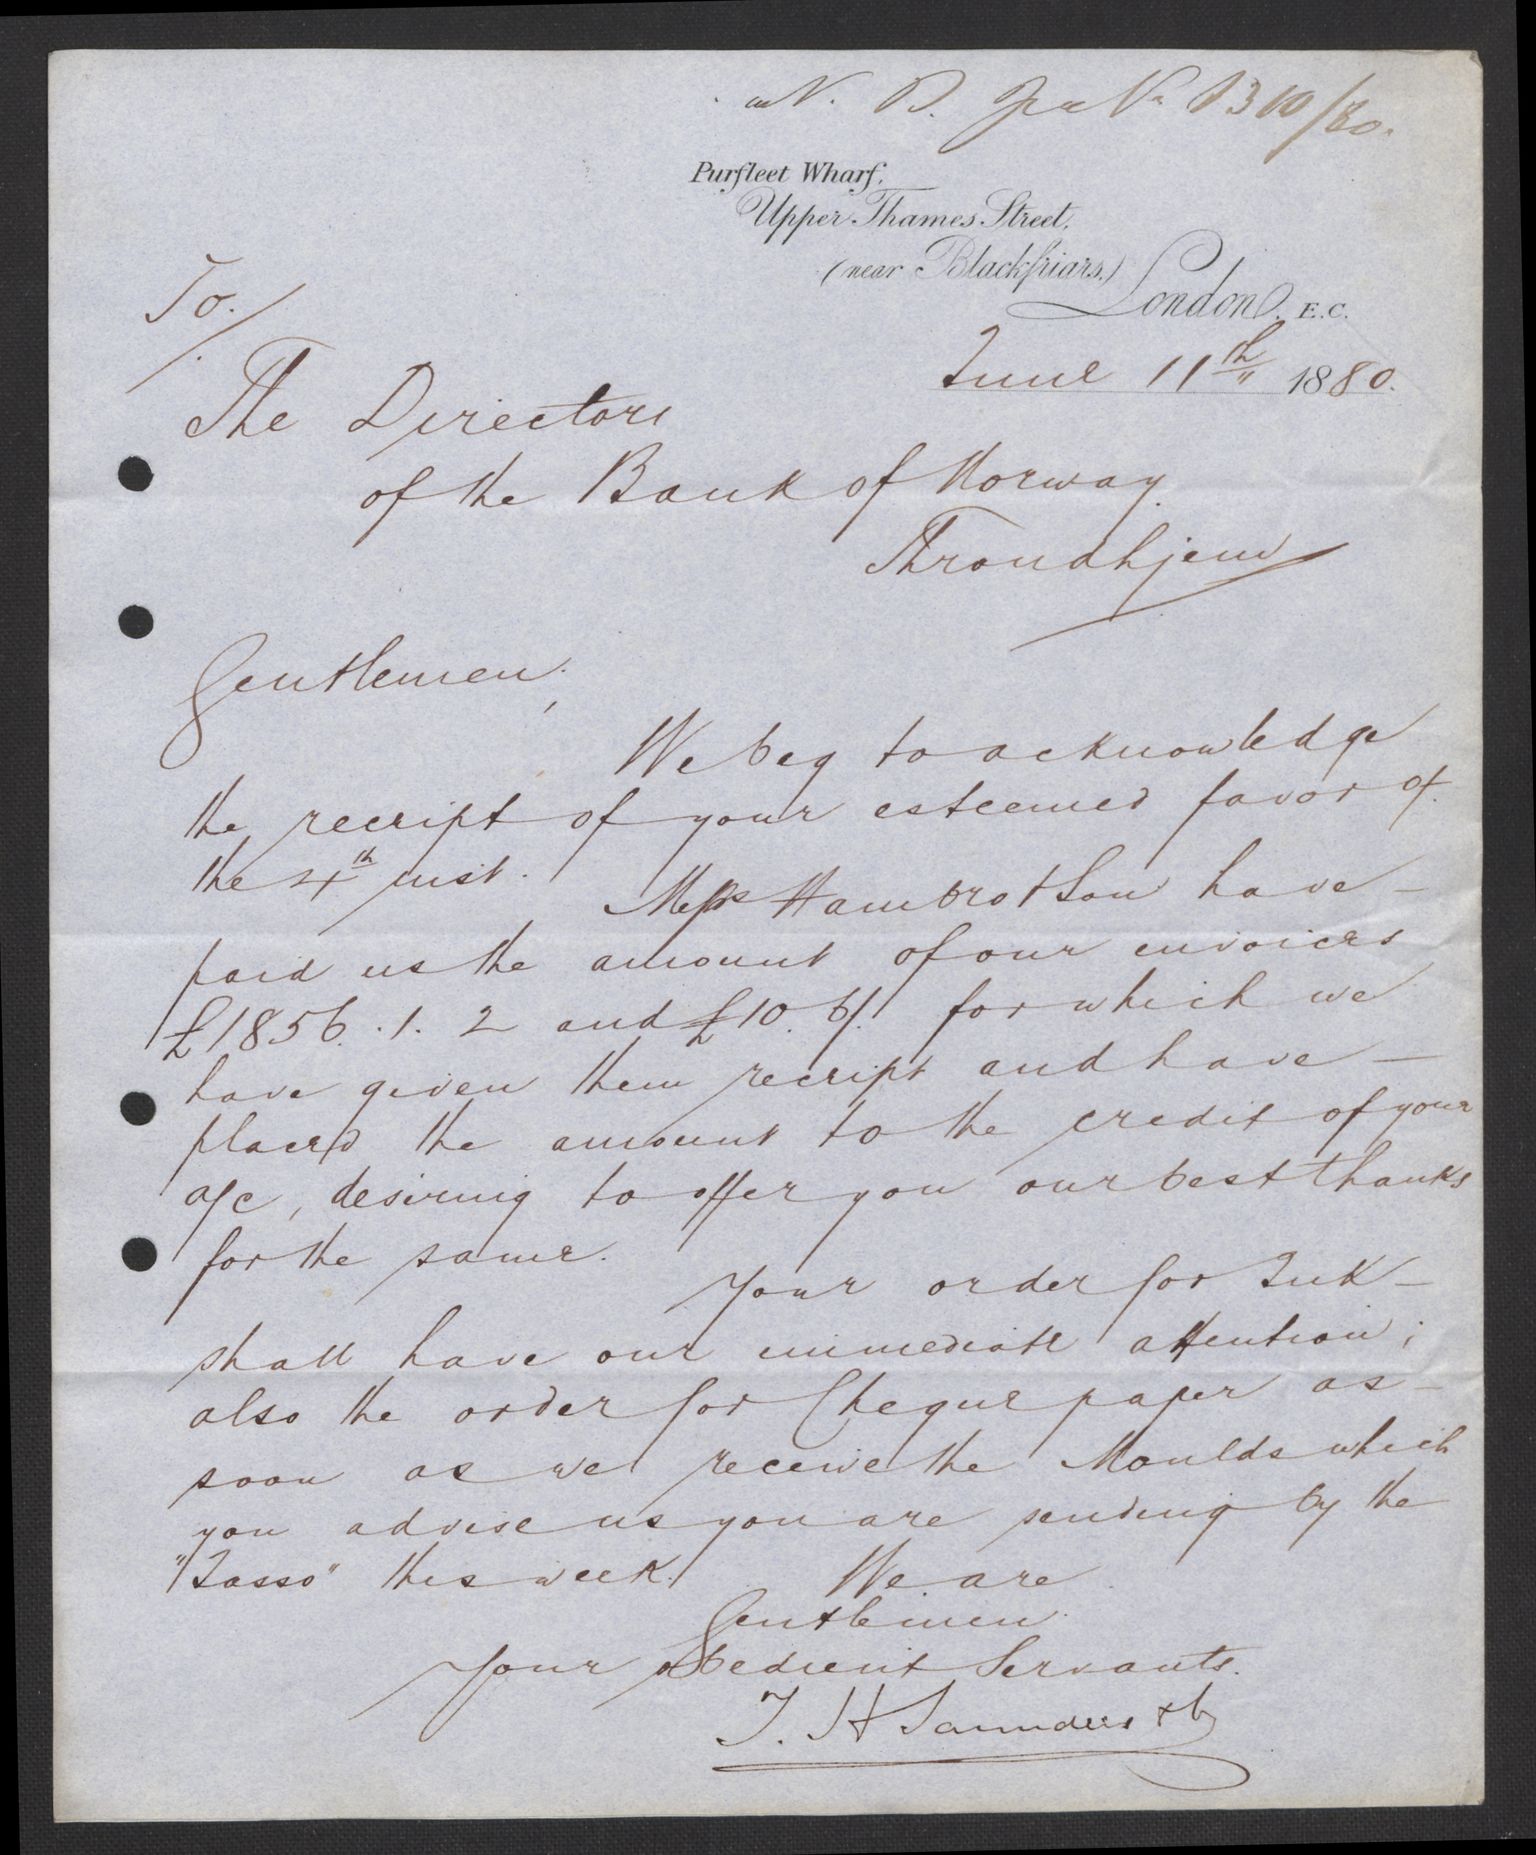 N. B. 310/80.
Purfleet Wharf,
Upper Thames Street,
(near Blackfriars.)
London. E.C.
To./.
June 11th 1880.
The Directors
of the Bank of Norway
Throndhjem
Gentlemen,
We beg to acknowledge
the receipt of your esteemed favor of
the 4th inst. Messrs Hambro & Son have –
paid us the amount of our invoices
£1856. 1. 2 and £10. 6/. for which we
have given them receipt and have –
placed the amount to the credit of your
a/c, desiring to offer you our best thanks
for the same.
Your order for Ink –
shall have our immediate attention;
also the order for Cheque paper as –
soon as we receive the Moulds which
you advise us you are sending by the
"Tasso" this week. We are
Gentlemen.
Your obedient Servants.
T. H Saunders & Co